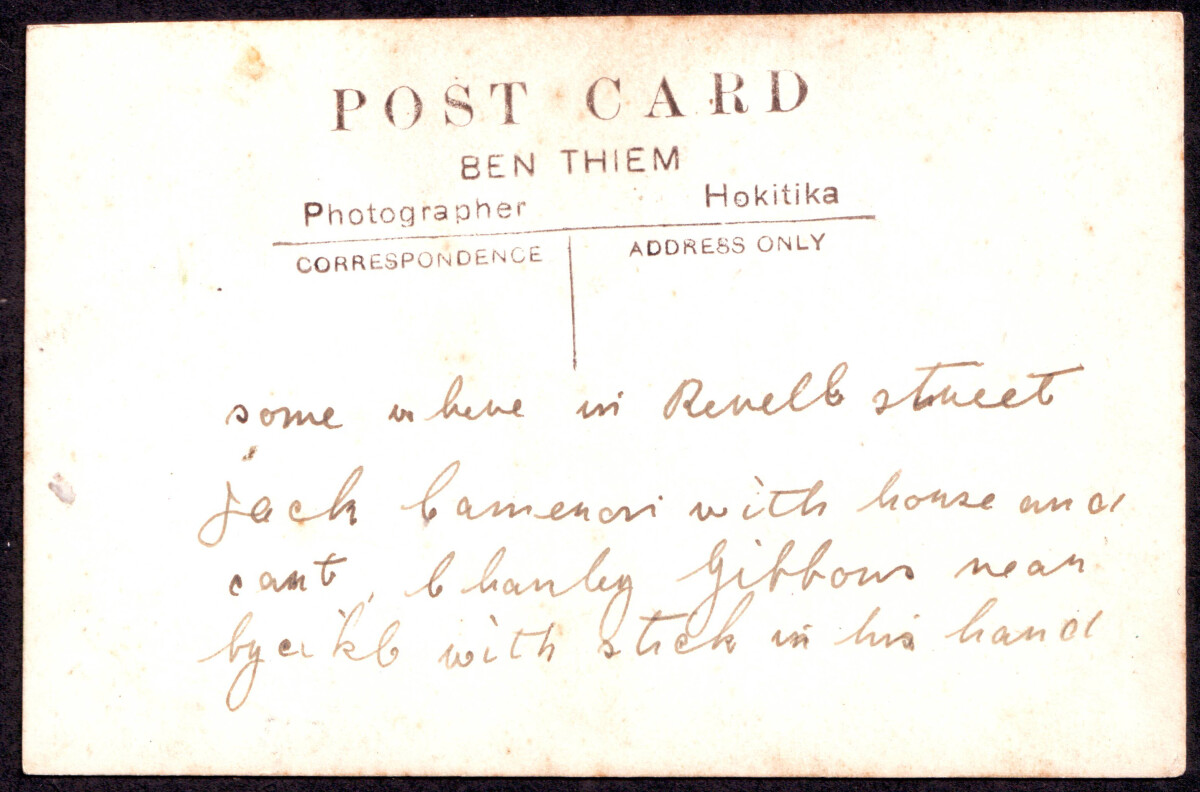 POST CARD
BEN THIEM
Photographer Hokitika
CORRESPONDENCE ADDRESS ONLY
some where in Revell street
Jack Cameron with horse and
cart, Charley Gibbons near
bycikl with stick in his hand